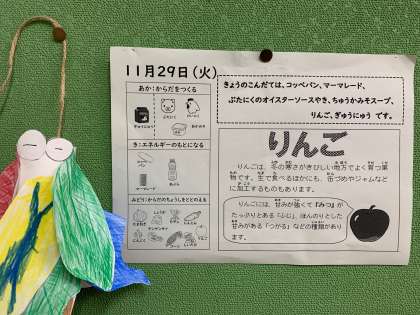 11月29日(火)
きょうのこんだては、コッペパン、マーマレード、
ぶたにくのオイスターソースやき、ちゅうかみそスープ、
りんご、ぎゅうにゅう です。
あか:からだをつくる
ぎゅうにゅう
き:エネルギーのもとになる
マーマレード
みどり:からだのちょうしをととのえる
りんご
りんごは、冬の寒さがきびしい地方でよく育つ果
物です。生で食べるほかにも、缶づめやジャムなど
に加工するものもあります。
りんごには、甘みが強くて「みつ」が
たっぷりとある「ふじ」、ほんのりとした
甘みがある「つがる」などの種類があり
ます。